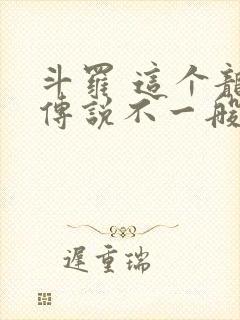 斗羅 這个龍
傳説不一般
遲重瑞